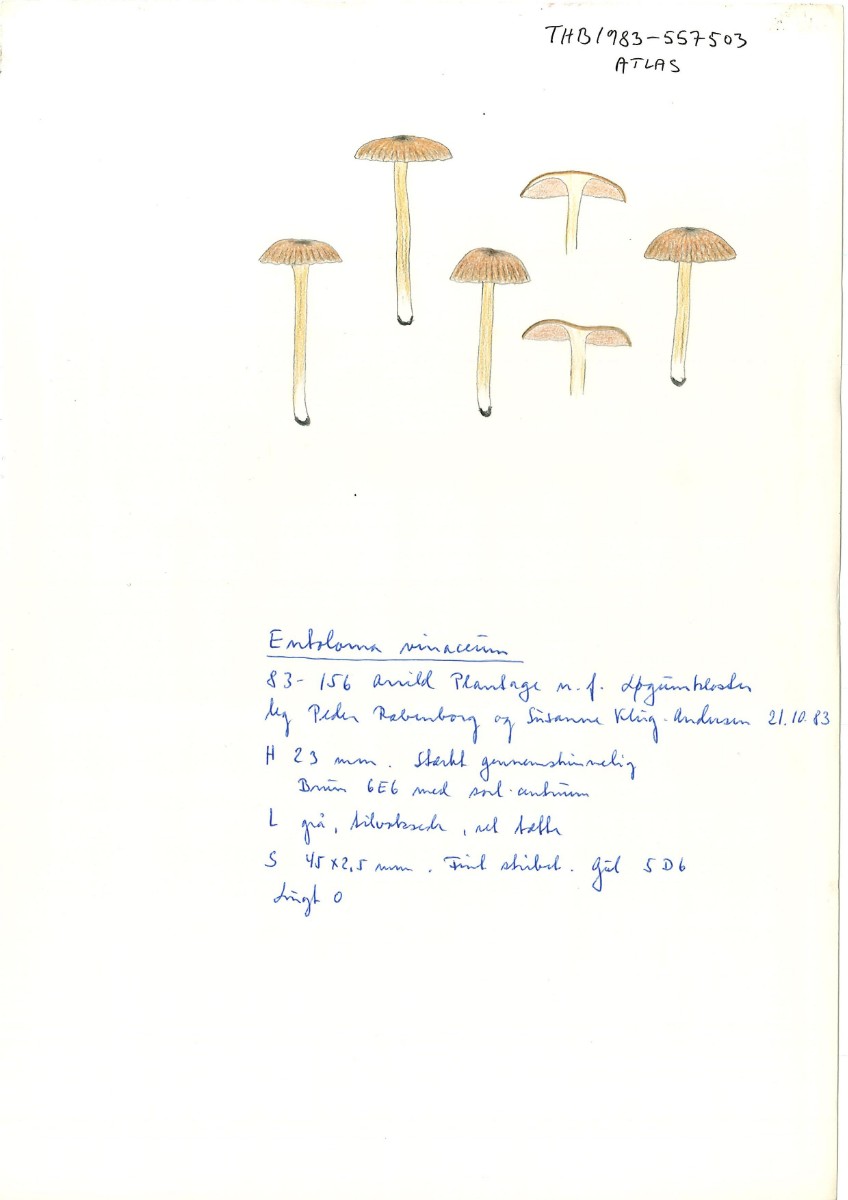 THB1983-557503
ATLAS
Entoloma vinaceum
83-156 Arrild Plantage n.f. Løgumkloster
leg Peder Rabenborg og Susanne Klug-Andersen 21.10.83
H 23 mm. Stærkt gennemskinnelig
Brun 6E6 med sort centrum
L grå, tilvoksede, ret tætte
S 45x2,5 mm. Fint stribet. Gul 5D6
Lugt 0